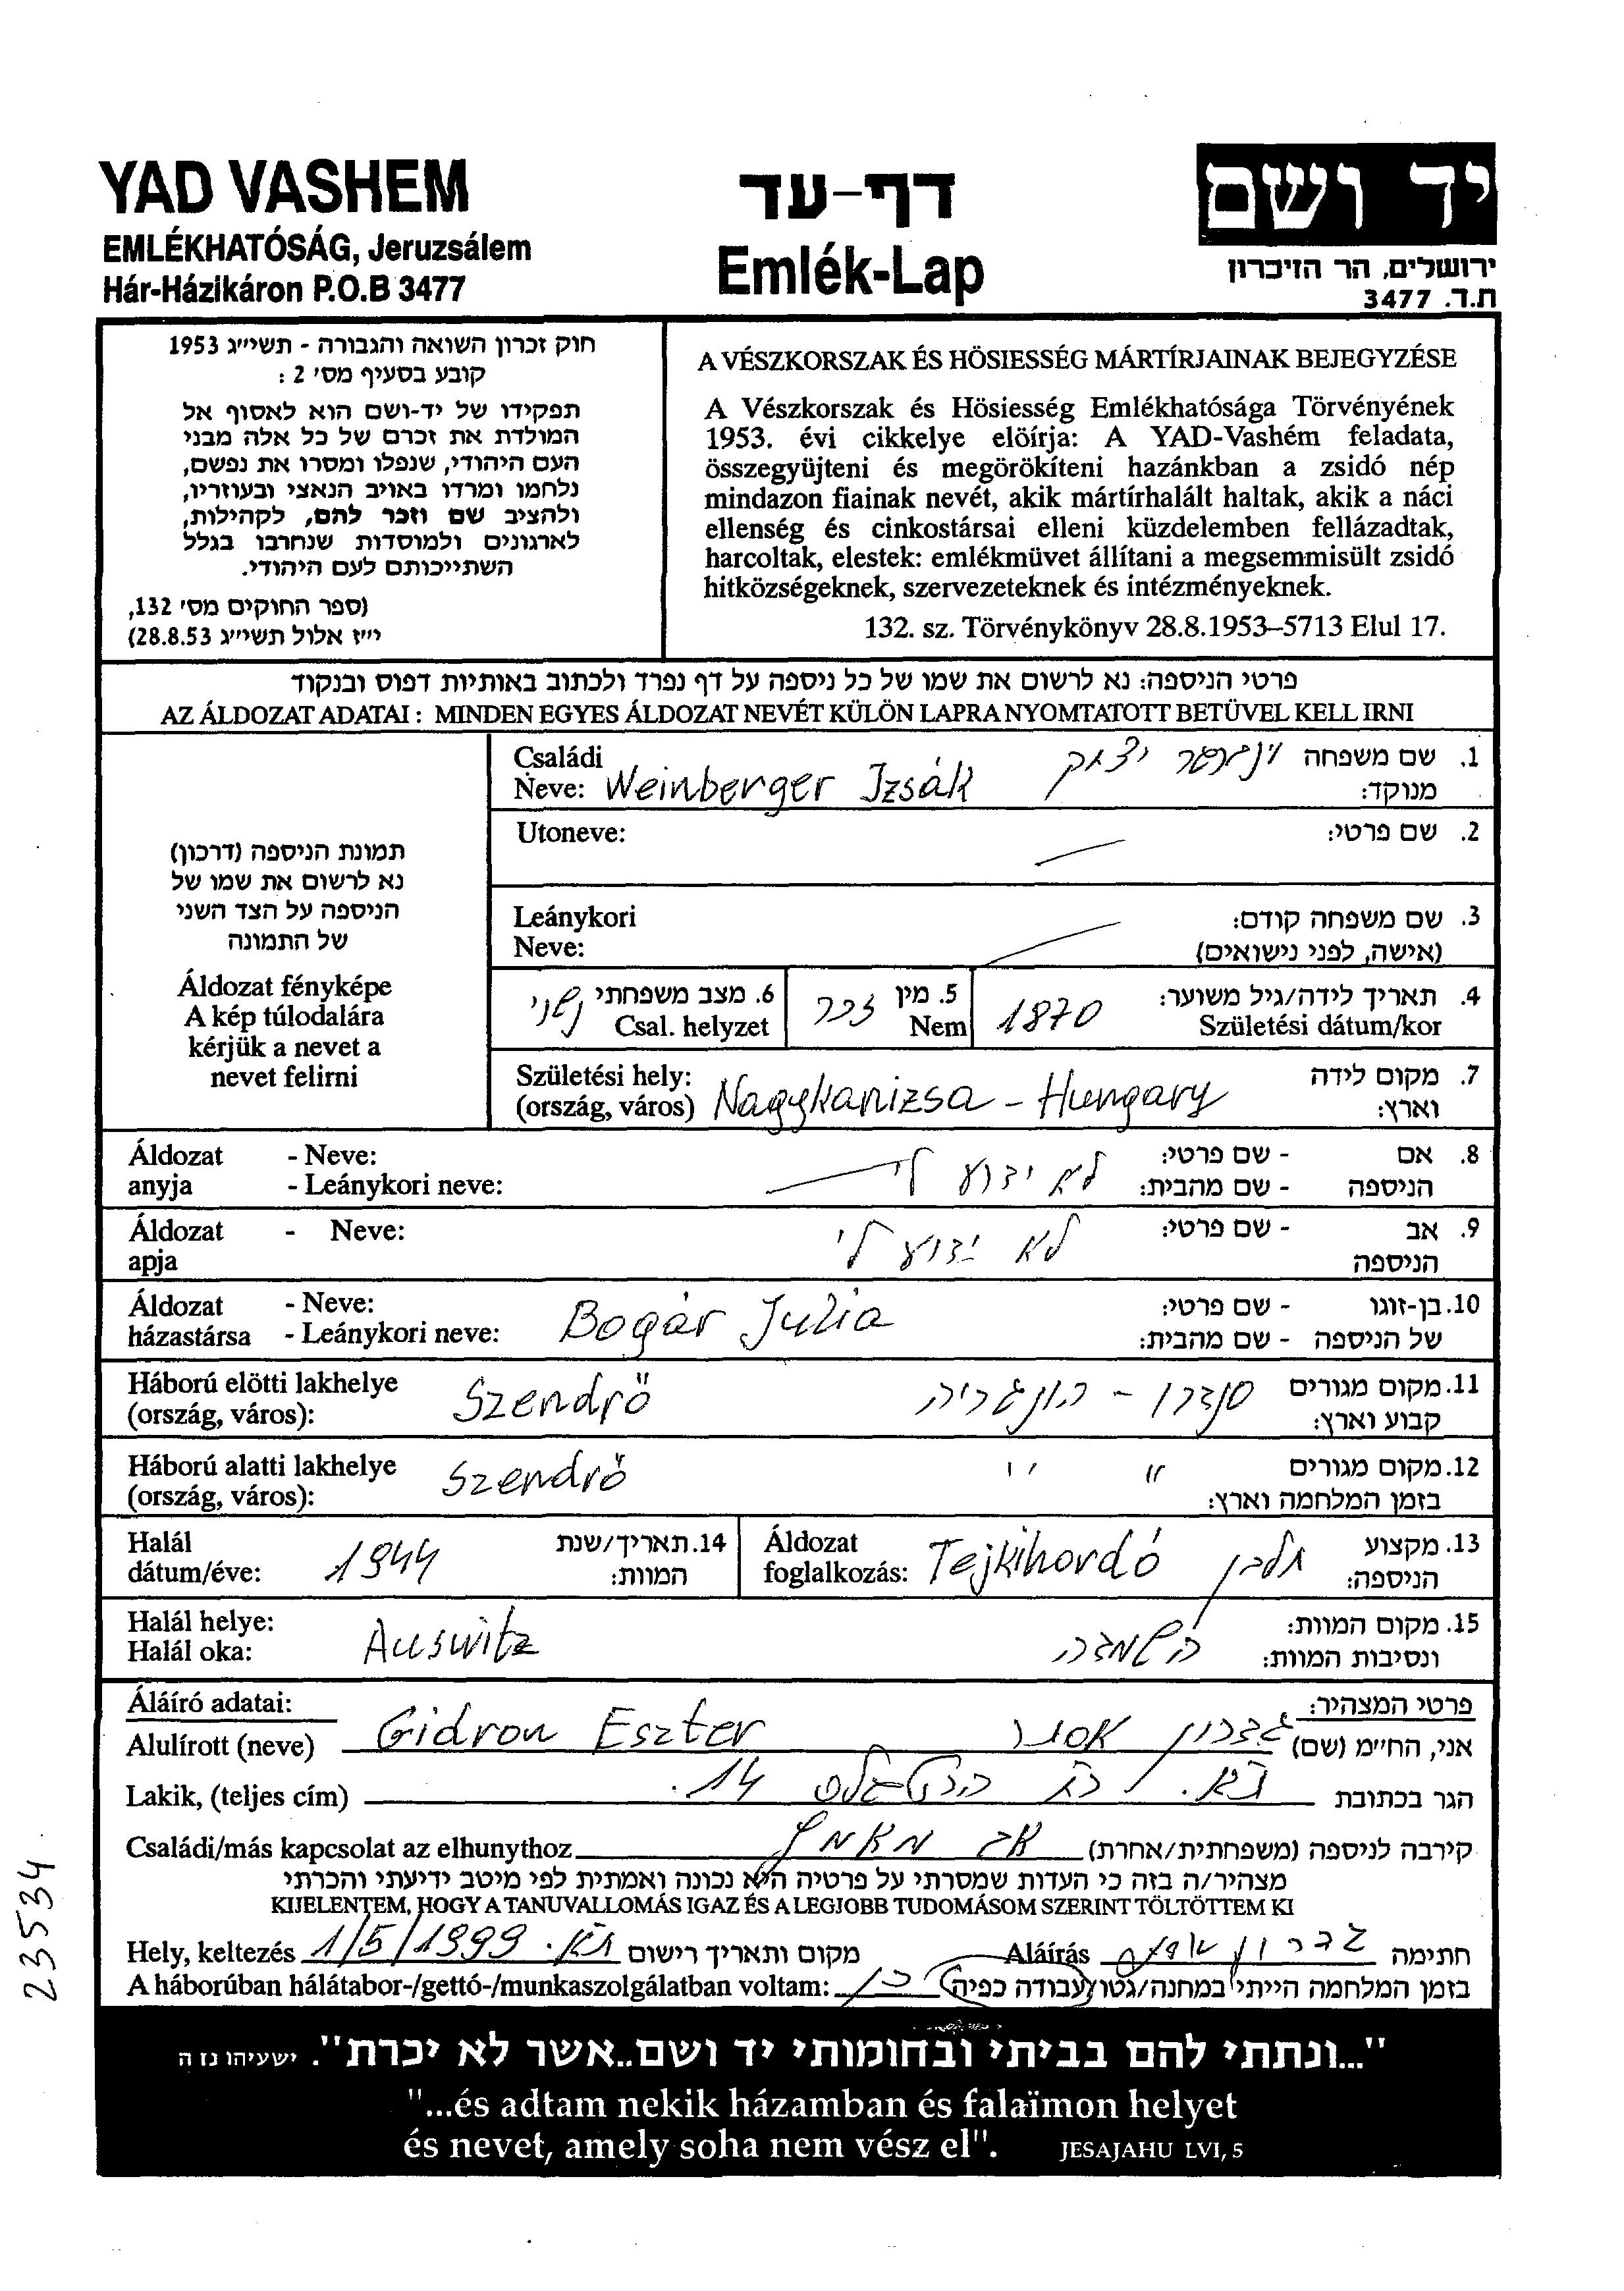 YAD VASHEM
EMLÉKHATÓSÁG, Jeruzsálem
Hár-Házikáron P.O.B 3477
דף-עד
Emlék-Lap
יד ושם
ירושלים, הר הזיכרון
ת.ד. 3477
חוק זכרון השואה והגבורה - תשי״ג 1953
קובע בסעיף מס׳ 2 :
תפקידו של יד-ושם הוא לאסוף אל
המולדת את זכרם של כל אלה מבני
העם היהודי, שנפלו ומסרו את נפשם,
נלחמו ומרדו באויב הנאצי ובעוזריו,
ולהציב שם וזכר להם, לקהילות,
לארגונים ולמוסדות שנחרבו בגלל
השתייכותם לעם היהודי.
(ספר החוקים מס׳ 132,
י״ז אלול תשי״ג 28.8.53)
A VÉSZKORSZAK ÉS HÖSIESSÉG MÁRTÍRJAINAK BEJEGYZÉSE
A Vészkorszak és Hösiesség Emlékhatósága Törvényének
1953. évi cikkelye elöírja: A YAD-Vashém feladata,
összegyüjteni és megörökíteni hazánkban a zsidó nép
mindazon fiainak nevét, akik mártírhalált haltak, akik a náci
ellenség és cinkostársai elleni küzdelemben fellázadtak,
harcoltak, elestek: emlékmüvet állítani a megsemmisült zsidó
hitközségeknek, szervezeteknek és intézményeknek.
132. sz. Törvénykönyv 28.8.1953–5713 Elul 17.
פרטי הניספה: נא לרשום את שמו של כל ניספה על דף נפרד ולכתוב באותיות דפוס ובנקוד
AZ ÁLDOZAT ADATAI : MINDEN EGYES ÁLDOZAT NEVÉT KÜLÖN LAPRA NYOMTATOTT BETÜVEL KELL IRNI
תמונת הניספה (דרכון)
נא לרשום את שמו של
הניספה על הצד השני
של התמונה
Áldozat fényképe
A kép túlodalára
kérjük a nevet a
nevet felirni
Családi
Neve: Weinberger Izsák
יצחק
1. שם משפחה
מנוקד:
Utoneve:
2. שם פרטי:
Leánykori
Neve:
3. שם משפחה קודם:
(אישה, לפני נישואים)
4. תאריך לידה/גיל משוער:
Születési dátum/kor 1870
5. מין זכר
Nem
6. מצב משפחתי נשוי
Csal. helyzet
Születési hely:
(ország, város) Nagykanizsa - Hungary
7. מקום לידה
וארץ:
Áldozat - Neve:
anyja - Leánykori neve:
לא ידוע לי
8. אם - שם פרטי:
הניספה - שם מהבית:
Áldozat - Neve:
apja
לא ידוע לי
9. אב - שם פרטי:
הניספה
Áldozat - Neve:
házastársa - Leánykori neve: Bogár Julia
10. בן-זוגו - שם פרטי:
של הניספה - שם מהבית:
Háború elötti lakhelye
(ország, város): Szendrő
סנדרו - הונגריה
11. מקום מגורים
קבוע וארץ:
Háború alatti lakhelye
(ország, város): Szendrő
" "
12. מקום מגורים
בזמן המלחמה וארץ:
Halál
dátum/éve: 1944
14. תאריך/שנת
המוות:
Áldozat
foglalkozás: Tejkihordó חלבן
13. מקצוע
הניספה:
Halál helye:
Halál oka: Auswitz
השמדה
15. מקום המוות:
ונסיבות המוות:
Áláíró adatai:
פרטי המצהיר:
Alulírott (neve) Gidron Eszter גדרון אסתר אני, הח״מ (שם)
Lakik, (teljes cím) 14 הגר בכתובת
Családi/más kapcsolat az elhunythoz קירבה לניספה (משפחתית/אחרת)
מצהיר/ה בזה כי העדות שמסרתי על פרטיה היא נכונה ואמתית לפי מיטב ידיעתי והכרתי
KIJELENTEM, HOGY A TANUVALLOMÁS IGAZ ÉS A LEGJOBB TUDOMÁSOM SZERINT TÖLTÖTTEM KI
Hely, keltezés 1/5/1999 מקום ותאריך רישום
Aláírás גדרון חתימה
A háborúban hálátabor-/gettó-/munkaszolgálatban voltam: כן בזמן המלחמה הייתי במחנה/גטו/עבודה כפיה
23534
"...ונתתי להם בביתי ובחומותי יד ושם..אשר לא יכרת". ישעיהו נז ה
"...és adtam nekik házamban és falaïmon helyet
és nevet, amely soha nem vész el". JESAJAHU LVI, 5